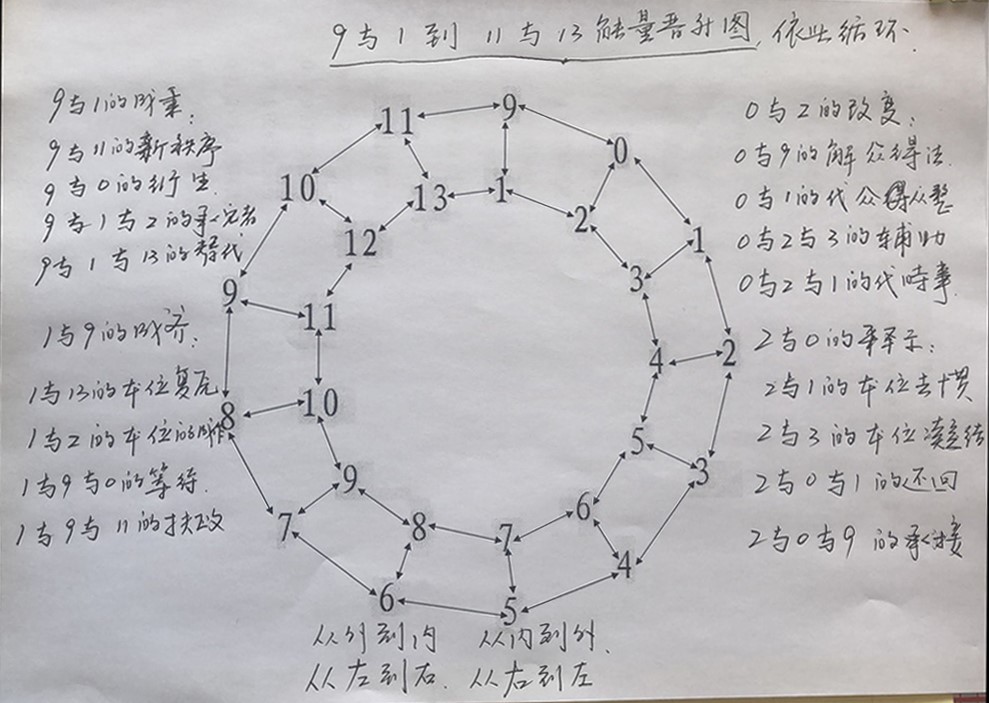 9与1到11与13能量晋升图,依此循环.
9与1的成乘:
9与11的新秩序
9与0的衍生.
9与1与2的承
9与1与13的替代
1与9的成济:
1与13的本位复
1与2的本位的
1与9与0的等待.
1与9与11的扶政
0与2的改变:
0与9的解众得法.
0与1的代众
0与2与3的辅助
0与2与1的代時事
2与0的
2与1的本位去惯
2与3的本位凑结
2与0与1的还回
2与0与9的承接
11 9 0
10 13 1 2 1
12 3
9 11 4 2
8 10 5 3
7 9 8 7 6 4
6 5
从外到内 从内到外.
从左到右. 从右到左